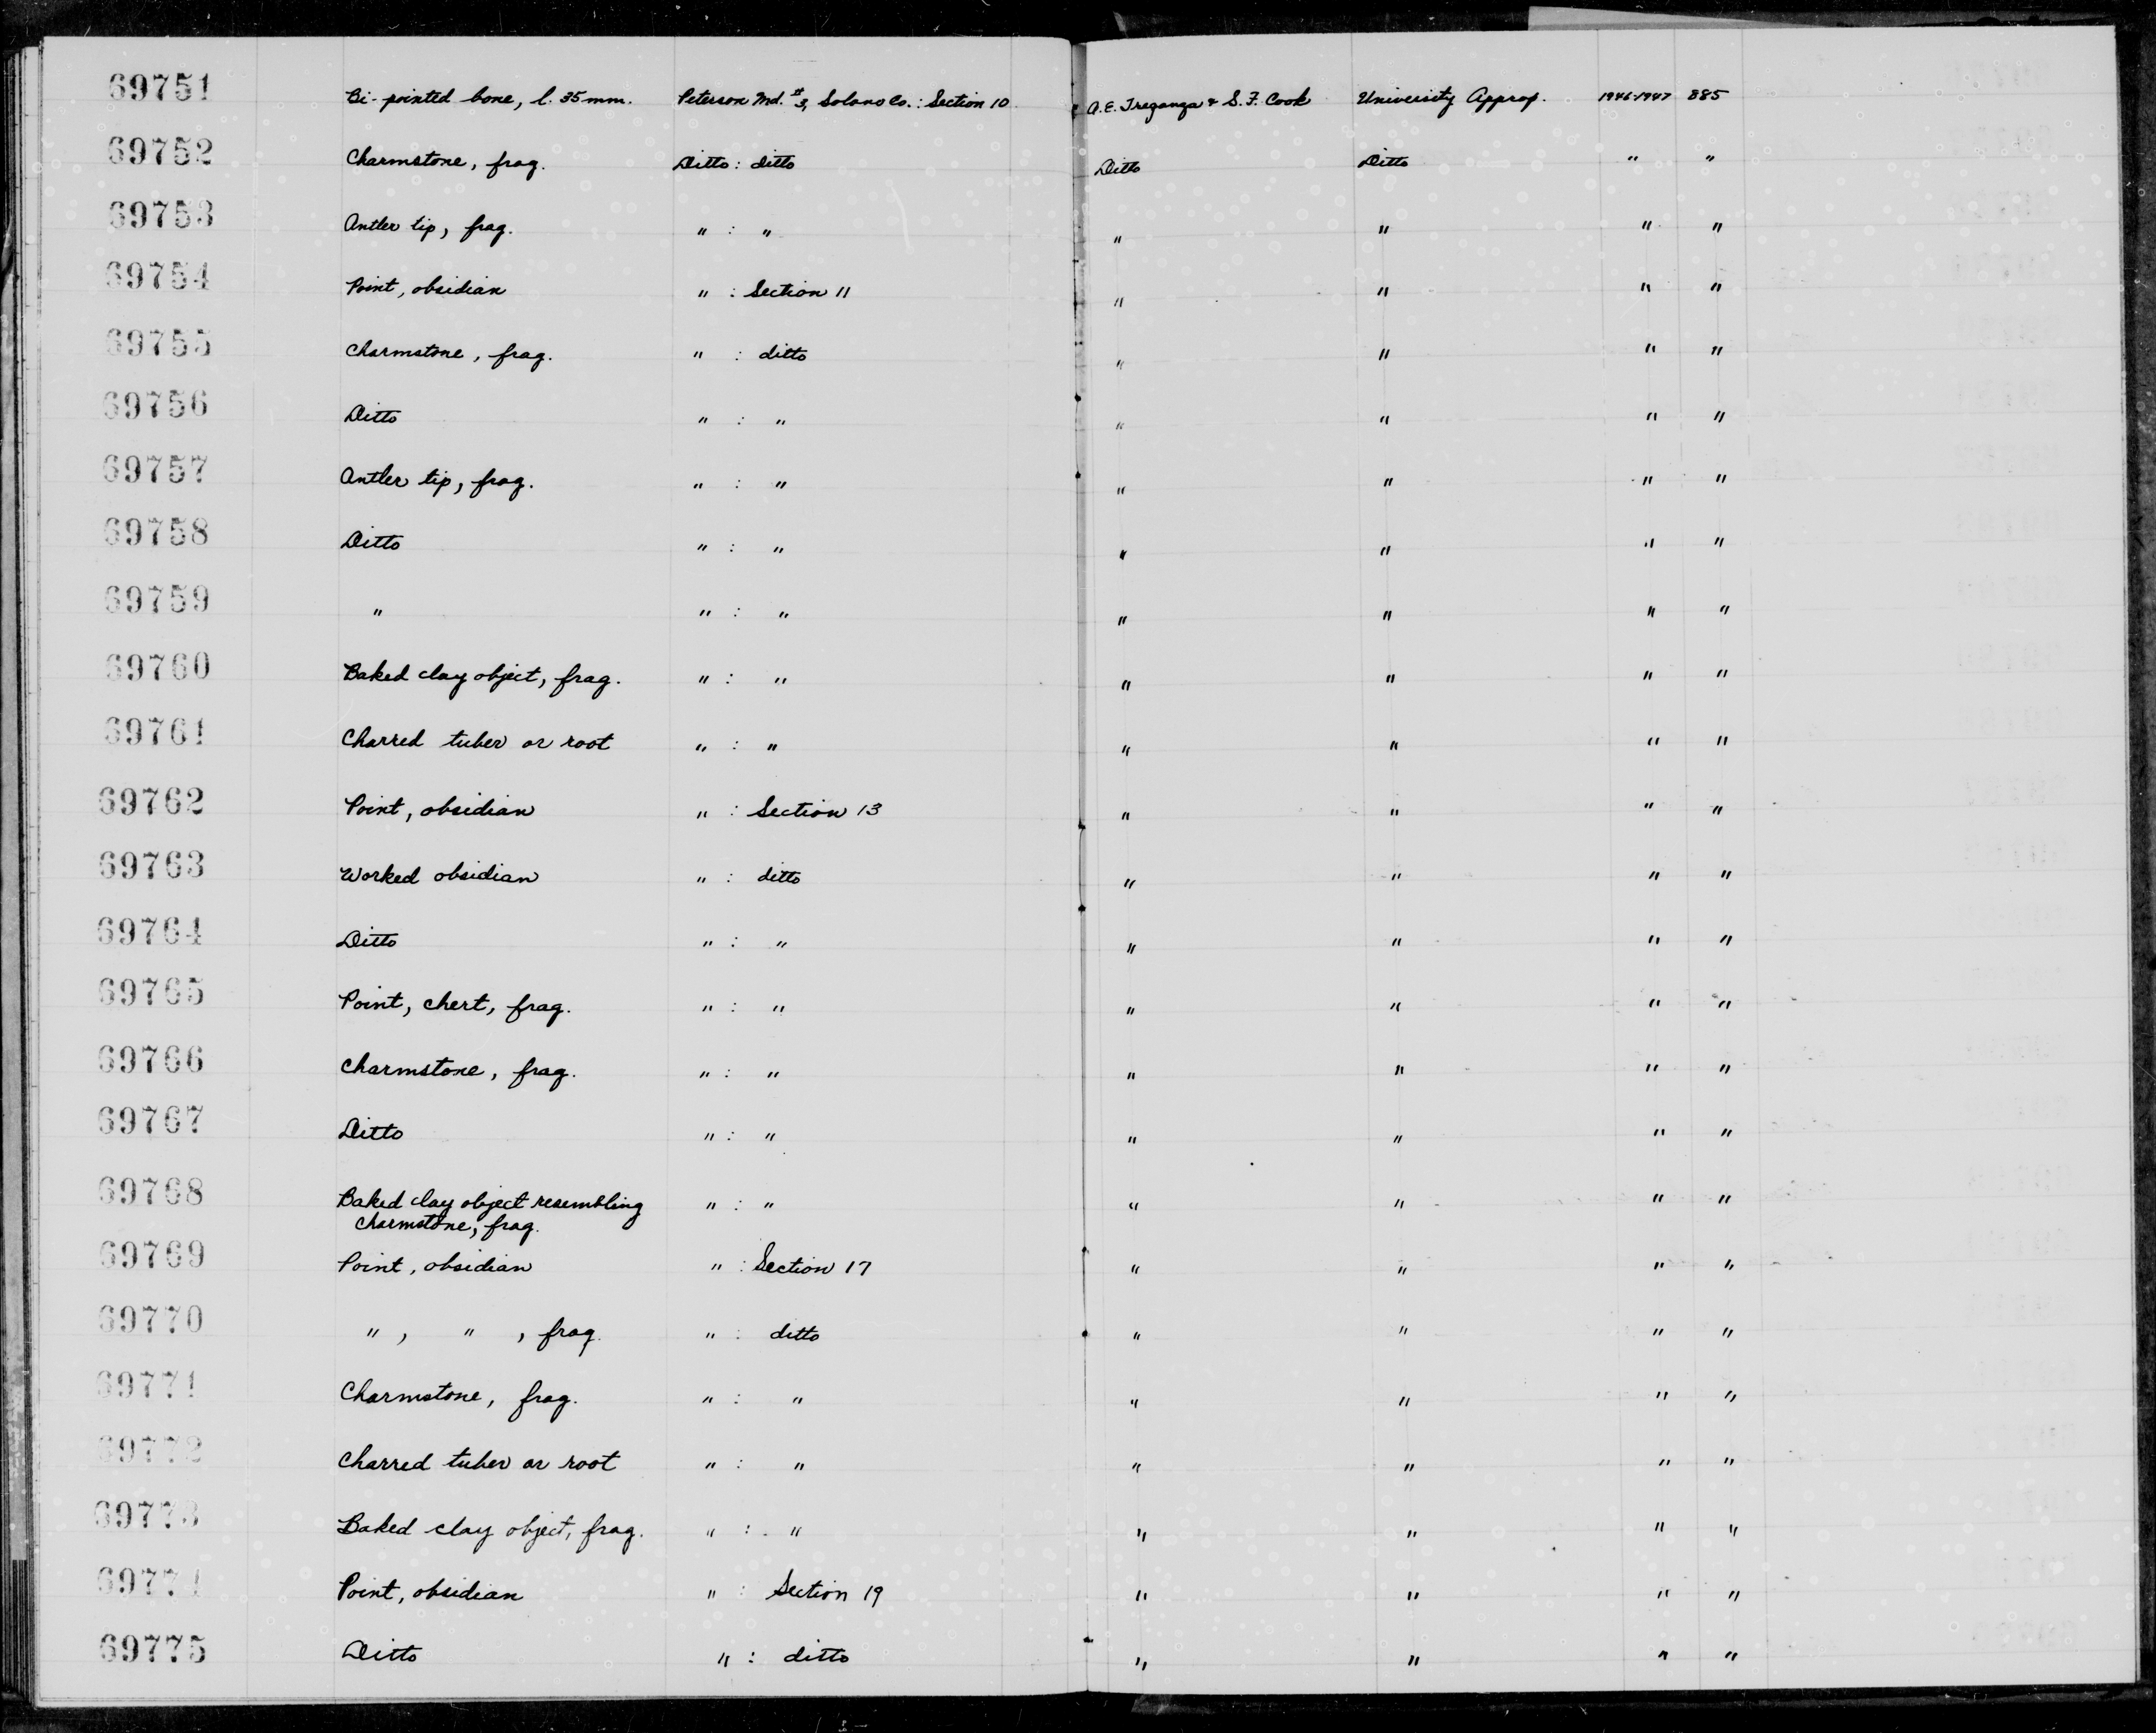 69751 Bi-pointed bone, l. 35 mm. Peterson Md. #3, Solano Co.: Section 10 A. E. Treganza & S. F. Cook University Approp. 1946-1947 885
69752 Charmstone, frag. Ditto : ditto Ditto Ditto " "
69753 Antler tip, frag. " : " " " " "
69754 Point, obsidian " : Section 11 " " " "
69755 Charmstone, frag. " : ditto " " " "
69756 Ditto " : " " " " "
69757 Antler tip, frag. " : " " " " "
69758 Ditto " : " " " " "
69759 " " : " " " " "
69760 Baked clay object, frag. " : " " " " "
69761 Charred tuber or root " : " " " " "
69762 Point, obsidian " : Section 13 " " " "
69763 Worked obsidian " : ditto " " " "
69764 Ditto " : " " " " "
69765 Point, chert, frag. " : " " " " "
69766 Charmstone, frag. " : " " " " "
69767 Ditto " : " " " " "
69768 Baked clay object resembling " : " " " " "
charmstone, frag.
69769 Point, obsidian " : Section 17 " " " "
69770 " , " , frag. " : ditto " " " "
69771 Charmstone, frag. " : " " " " "
69772 Charred tuber or root " : " " " " "
69773 Baked clay object, frag. " : " " " " "
69774 Point, obsidian " : Section 19 " " " "
69775 Ditto " : ditto " " " "